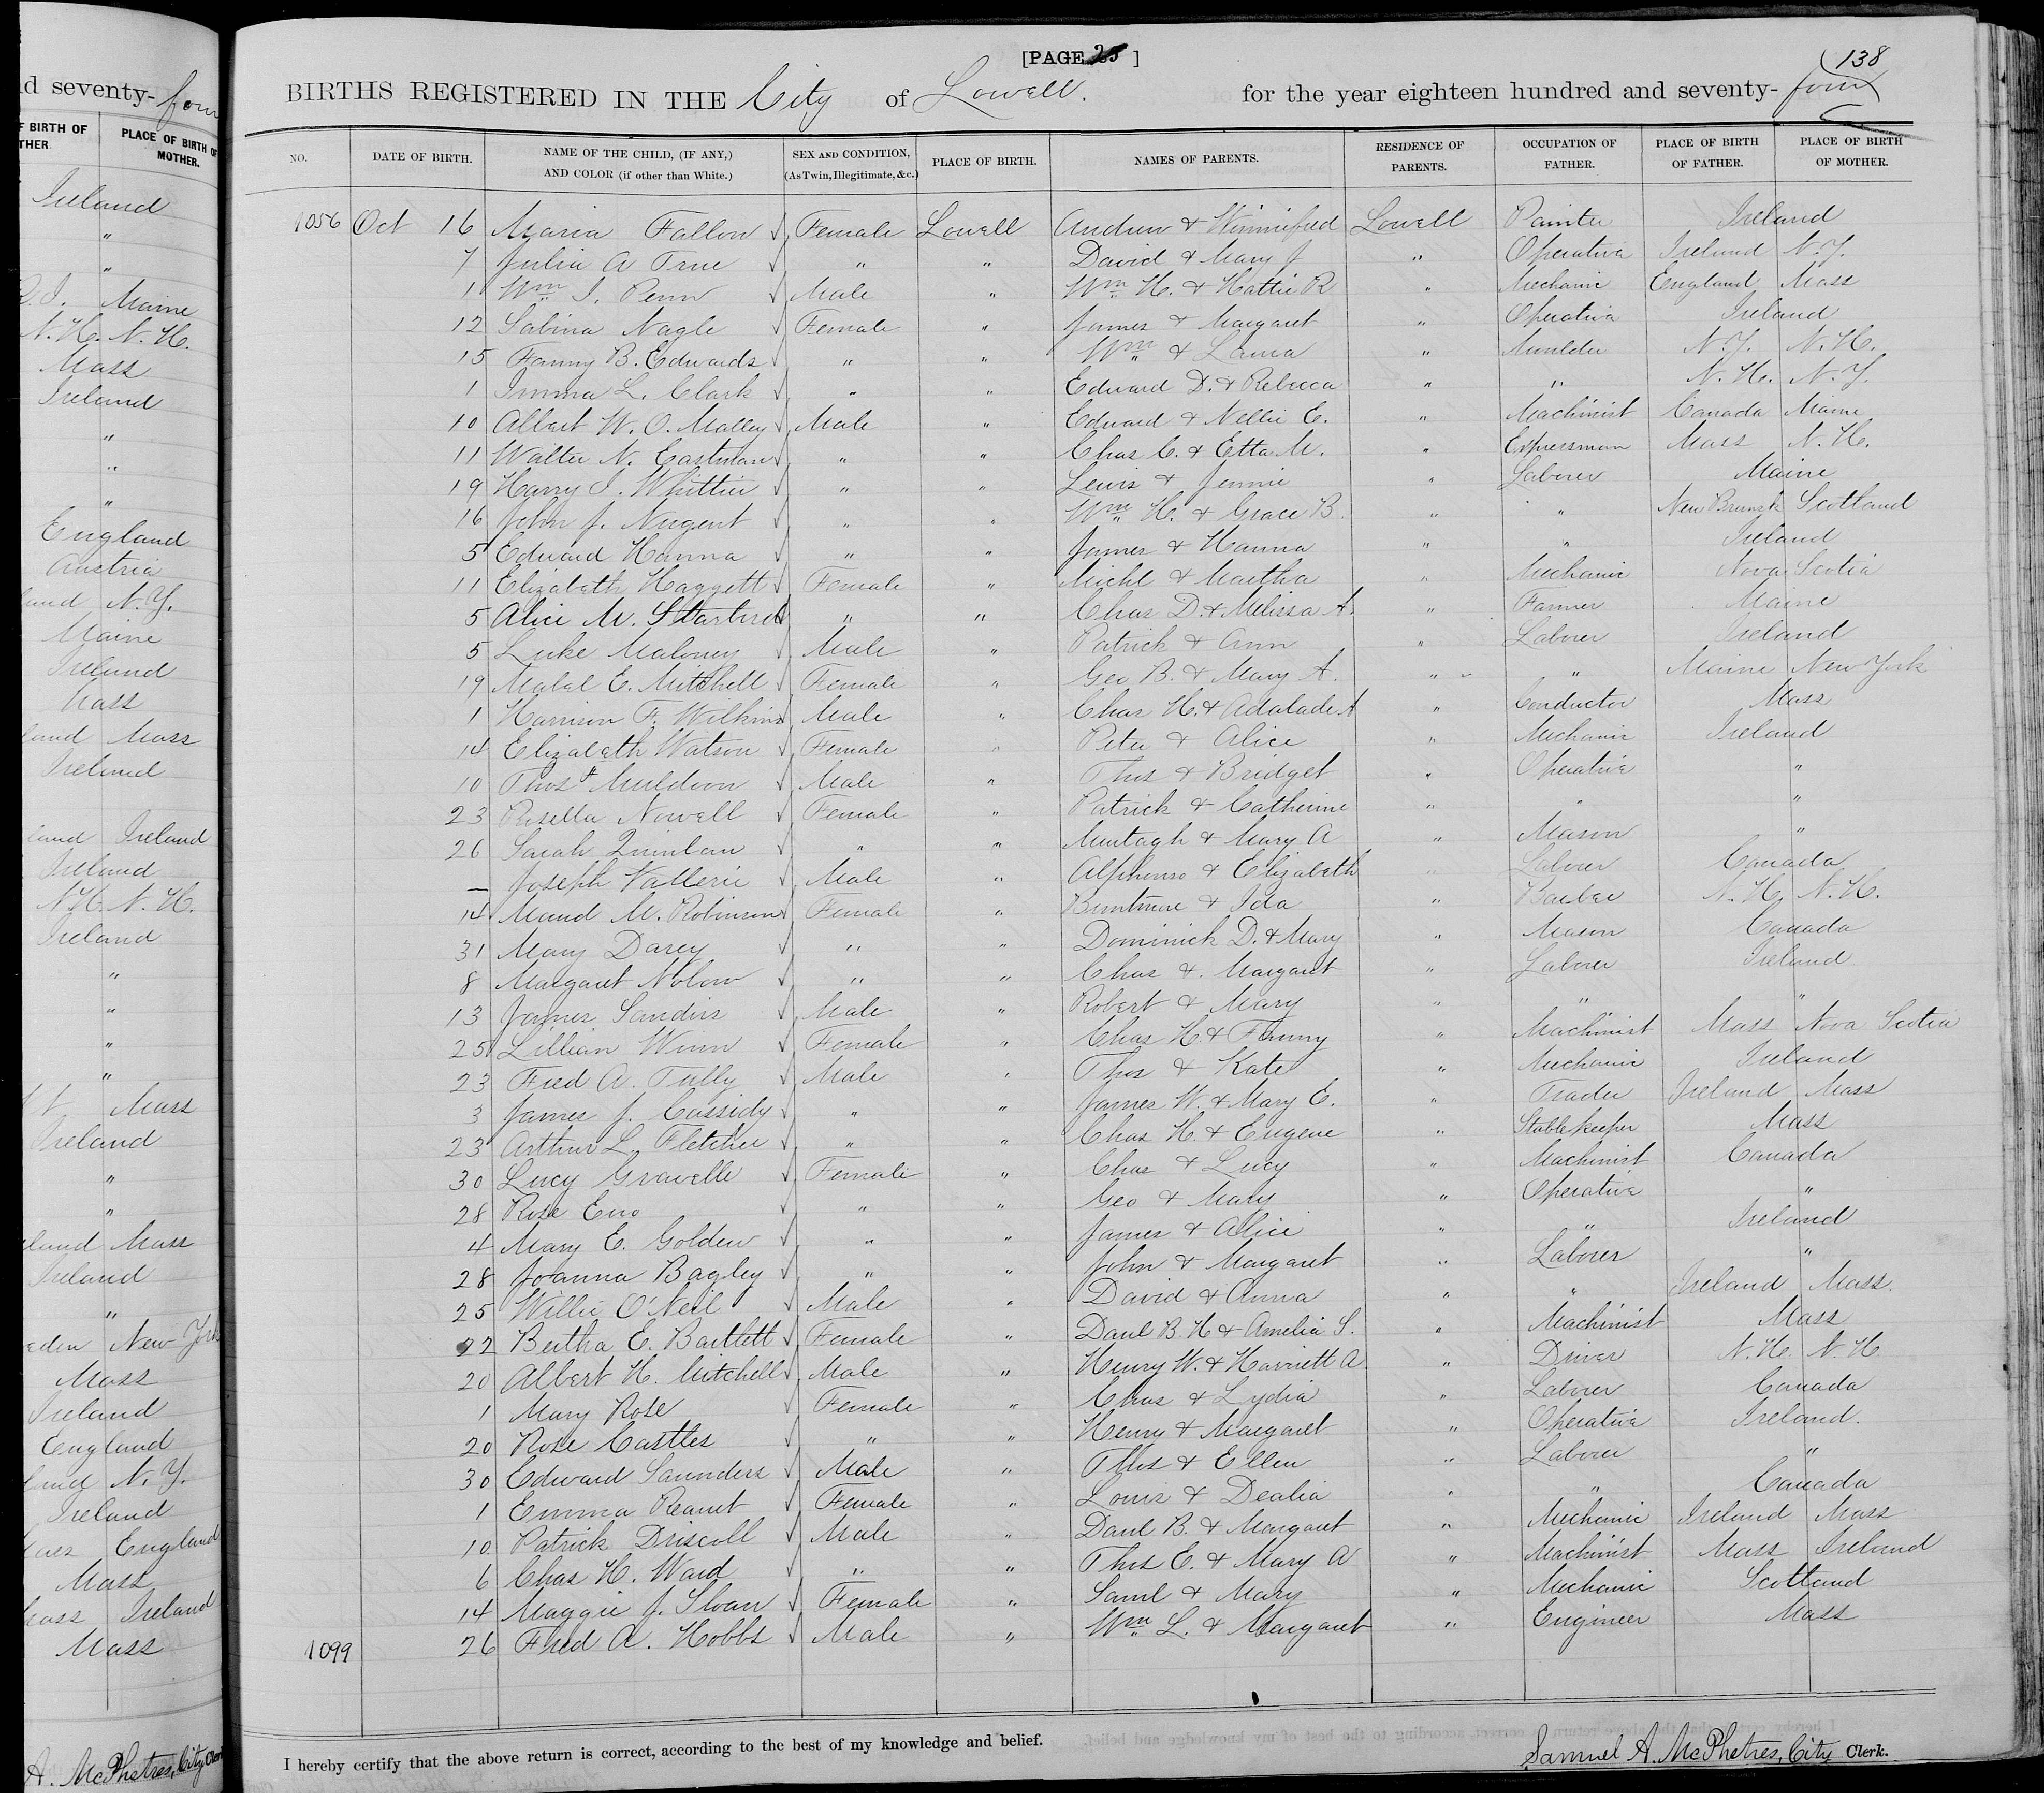 [PAGE 25 ]
138
BIRTHS REGISTERED IN THE City of Lowell. for the year eighteen hundred and seventy- four
NO. DATE OF BIRTH. NAME OF THE CHILD, (IF ANY,) AND COLOR (if other than White.) SEX AND CONDITION, (As Twin, Illegitimate, &c.) PLACE OF BIRTH. NAMES OF PARENTS. RESIDENCE OF PARENTS. OCCUPATION OF FATHER. PLACE OF BIRTH OF FATHER. PLACE OF BIRTH OF MOTHER.
1056 Oct 16 Maria Fallon √ Female Lowell Andrew & Winnifred Lowell Painter Ireland
7 Julia A True √ " " David & Mary J " Operative Ireland N.Y.
1 Wm I. Penn √ Male " Wm H. & Hattie R " Mechanic England Mass
12 Sabina Nagle √ Female " James & Margaret " Operative Ireland
15 Fanny B. Edwards √ " " Wm & Laura " Moulder N.Y. N.H.
1 Imma L. Clark √ " " Edward D. & Rebecca " " N.H. N.Y.
10 Albert W. O. Malley √ Male " Edward & Nellie E. " Machinist Canada Maine
11 Walter N. Eastman √ " " Chas C. & Etta M. " Expressman Mass N.H.
19 Harry I. Whittier √ " " Lewis & Jennie " Laborer Maine
16 John J. Nugent √ " " Wm H. & Grace B. " " New Brunsk Scotland
5 Edward Hanna √ " " James & Hanna " " Ireland
11 Elizabeth Haggett √ Female " Michl & Martha " Mechanic Nova Scotia
5 Alice M. Starbird " " Chas D. & Melissa A. " Farmer Maine
5 Luke Maloney √ Male " Patrick & Ann " Laborer Ireland
19 Mabel E. Mitchell √ Female " Geo B. & Mary A. " " Maine New York
1 Harrison F. Wilkins √ Male " Chas H. & Adalade A " Conductor Mass
14 Elizabeth Watson √ Female " Peter & Alice " Mechanic Ireland
10 Thos Muldoon √ Male " Thos & Bridget " Operative "
23 Rosella Nowell √ Female " Patrick & Catherine " " "
26 Sarah Quinlan √ " " Murtagh & Mary A " Mason "
— Joseph Vallerie √ Male " Alphonso & Elizabeth " Laborer Canada
14 Maud M. Robinson √ Female " & Ida " Barber N.H. N.H.
31 Mary Darcy √ " " Dominick D. & Mary " Mason Canada
8 Margaret Nolow √ " " Chas & Margaret " Laborer Ireland
13 James Sanders √ Male " Robert & Mary " " "
25 Lillian Winn √ Female " Chas H. & Fanny " Machinist Mass Nova Scotia
23 Fred A. Tully √ Male " Thos & Kate " Mechanic Ireland
3 James J. Cassidy √ " " James W. & Mary E. " Trader Ireland Mass
23 Arthur L. Fletcher √ " " Chas H. & Eugene " Stable keeper Mass
30 Lucy Gravelle √ Female " Chas & Lucy " Machinist Canada
28 Rose Eno √ " " Geo & Mary " Operative "
4 Mary E. Golden √ " " James & Alice " " Ireland
28 Joanna Bagley √ " " John & Margaret " Laborer "
25 Willie O'Neil √ Male " David & Anna " " Ireland Mass.
22 Bertha E. Bartlett √ Female " Danl B. H & Amelia S. " Machinist Mass
20 Albert H. Mitchell √ Male " Henry W. & Harriett A " Driver N.H. N.H
1 Mary Rose Female " Chas & Lydia " Laborer Canada
20 Rose Castles √ " " Henry & Margaret " Operative Ireland.
30 Edward Saunders √ Male " Thos & Ellen " Laborer "
1 Emma √ Female " Louis & Dealia " " Canada
10 Patrick Driscoll √ Male " Danl B. & Margaret " Mechanic Ireland Mass
6 Chas H. Ward √ " " Thos E. & Mary A " Machinist Mass Ireland
14 Maggie J. Sloan √ Female " Saml & Mary " Mechanic Scotland
1099 26 Fred A. Hobbs √ Male " Wm L. & Margaret " Engineer Mass
I hereby certify that the above return is correct, according to the best of my knowledge and belief. Samuel A. McPhetres, City Clerk.
d seventy- four
F BIRTH OF THER. PLACE OF BIRTH OF MOTHER.
Ireland
"
"
R.I. Maine
N.H. N.H.
Mass
Ireland
"
"
"
England
Austria
land N.Y.
Maine
Ireland
Mass
land Mass
Ireland
land Ireland
Ireland
N.H. N.H.
Ireland
"
"
"
"
Mass
Ireland
"
"
eland Mass
Ireland
"
eden New York
Mass
Ireland
England
land N.Y.
Ireland
England
Mass
Mass Ireland
Mass
A. McPhetres, City Clerk